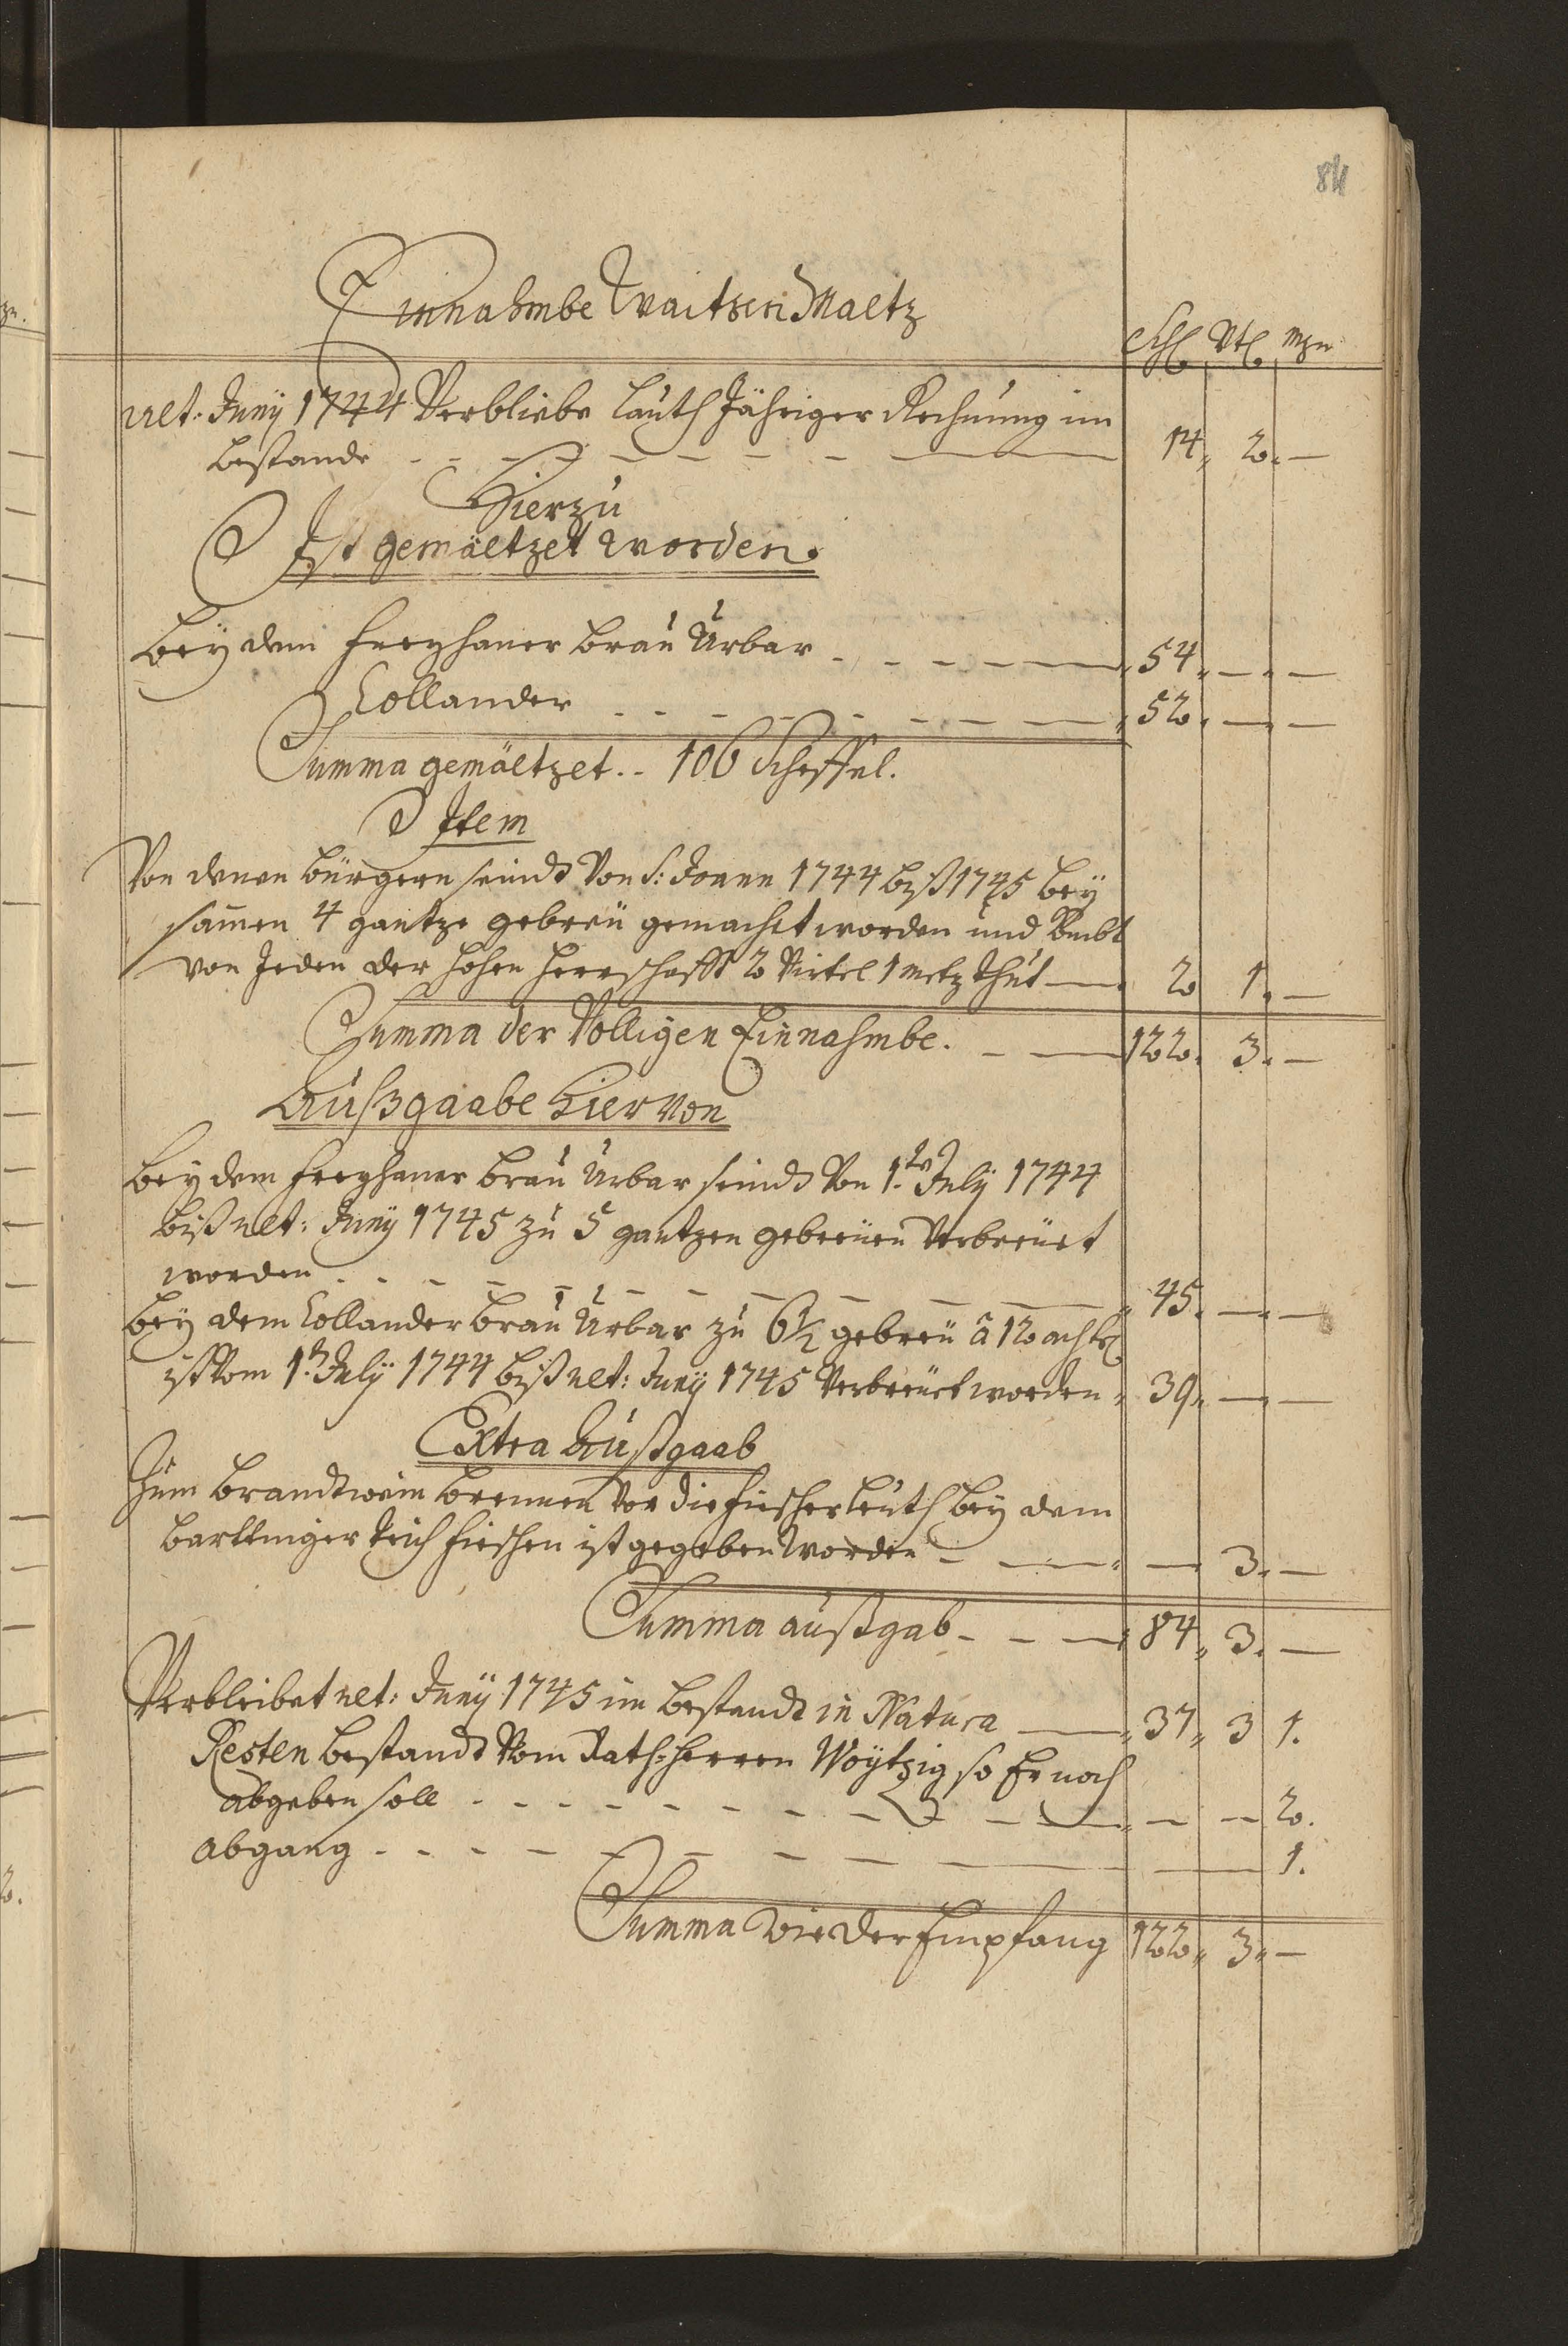 84
Einnahmbe Waitzen Maltz
Schl Vtl mzn
ult: Juny 1744 Verbliebe lauth Jähriger Rechnung im
bestande - - - - - - - 14 „ 2 . —
Hierzu
Ist gemältzet worden.
Bey dem Freyhaner brau Urbar - - - - - „ 54 „ — „ —
Collander - - - - - - - „ 52 . — „ —
Summa gemältzet . . 106 Scheffel.
Item
Von denen bürgern seindt Von S: Joann 1744 biß 1745 bey
samen 4 gantze gebreü gemacht worden und
von Jeden der hohen herrschafft 2 Virtel 1 metz thut — 2 1 „ —
Summa der Völligen Einnahmbe. - — 122 . 3 . —
Außgaabe hiervon
Bey dem Freyhaner brau Urbar seindt Von 1. July 1744
biß ult: Juny 1745 zu 5 gantzen gebreüen Verbreüet
worden . . - - - - - - - - „ 45 . — „ —
Bey dem Collander brau Urbar zu 6½ gebreu â 12 achtl
ist Vom 1. July 1744 biß ult: Juny 1745 Verbreüet worden „ 39 „ — „ —
Extra Außgaab
Zum brandtwein brennen vor die fischer leuth bey dem
teich fischen ist gegeben worden - — „ — 3 . —
Summa außgab - - — „ 84 „ 3 . —
Verbleibet ult: Juny 1745 im bestandt in Natura — „ 37 „ 3 1 .
Resten bestandt Vom Rath-herren Woytzig so Er noch
abgeben soll - - - - - - - - - - — „ — — 2 .
Abgang - - - - - - - - — — 1 .
Summa wie der Empfang 122 „ 3 „ —